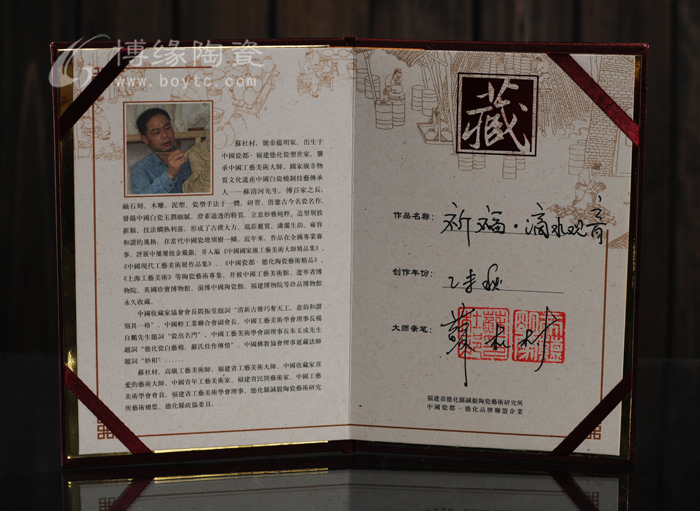 博缘陶瓷
www.boytc.com
蘇杜村，號帝蘊明家，出生于
中國瓷都·福建德化瓷塑世家，襲
承中國工藝美術大師、國家級非物
質文化遺産中國白瓷燒制技藝傳承
人——蘇清河先生。博百家之長，
融石刻、木雕、泥塑、瓷塑手法于一體，研習、借鑒古今名瓷名作，
發揚中國白瓷玉潤細膩、澄素通透的特質，立意妙雅純粹，造型别致
新穎，技法嫻熟利落，形成了古樸大方、端莊麗質、瀟灑生韵、雍容
和諧的風格，在當代中國瓷壇獨樹一幟。近年來，作品在全國專業賽
事、評展中屢屢披金戴銀；并入編《中國國家級工藝美術大師精品集》、
《中國現代工藝美術展作品集》、《中國瓷都·德化陶瓷藝術精品》、
《上海工藝美術》等陶瓷藝術專集，并被中國工藝美術館、遼寧省博
物院、英國珍寶博物館、淄博中國陶瓷館、福建博物院等珍品博物館
永久收藏。
中國收藏家協會會長閻振堂題詞“清新古雅巧奪天工，意韵和諧
别具一格”，中國輕工業聯合會副會長、中國工藝美術學會理事長楊
自鵬先生題詞“瓷出名門”，中國工藝美術學會副理事長朱玉成先生
題詞“德化瓷白藝精，蘇氏佳作傳情”，中國佛教協會理事延藏法師
題詞“妙相”……。
蘇杜村，高級工藝美術師、福建省工藝美術大師、中國收藏家喜
愛的藝術大師、中國青年工藝美術家、福建省民間藝術家、中國工藝
美術學會會員、福建省工藝美術學會理事、德化縣誠毅陶瓷藝術研究
所藝術總監、德化縣政協委員。
藏
作品名称：祈福·滴水观音
创作年份：乙未秋
大师亲笔：蘇杜村
福建省德化縣誠毅陶瓷藝術研究所
中國瓷都·德化品牌聯盟企業